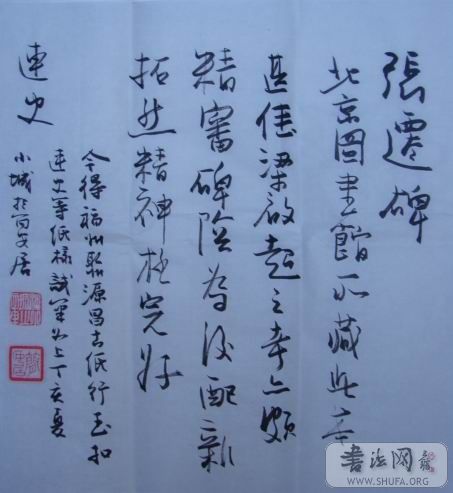 張遷碑
北京图書館所藏此本
甚佳梁啟超之本亦頗
精審碑陰為後配新
拓然精神極完好
連史
今得福州聚源昌古紙行玉扣
連史等紙樣試筆如上丁亥夏
小城於百安居
書法网
WWW.SHUFA.ORG